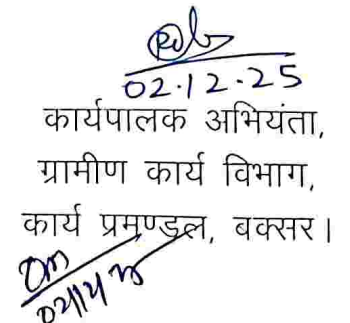 02.12.25
कार्यपालक अभियंता,
ग्रामीण कार्य विभाग,
कार्य प्रमण्डल, बक्सर।